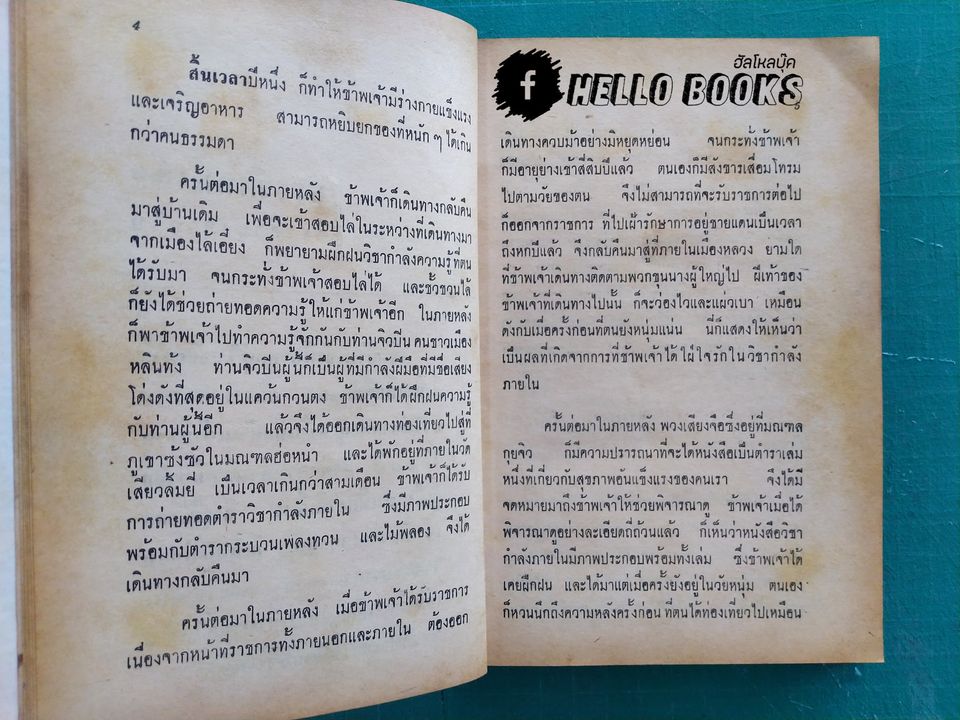 4
สิ้นเวลาปีหนึ่ง ก็ทำให้ข้าพเจ้ามีร่างกายแข็งแรง
และเจริญอาหาร สามารถหยิบยกของที่หนัก ๆ ได้เกิน
กว่าคนธรรมดา
ครั้นต่อมาในภายหลัง ข้าพเจ้าก็เดินทางกลับคืน
มาสู่บ้านเดิม เพื่อจะเข้าสอบไล่ในระหว่างที่เดินทางมา
จากเมืองไล้เอี่ยง ก็พยายามฝึกฝนวิชากำลังความรู้ที่ตน
ได้รับมา จนกระทั่งข้าพเจ้าสอบไล่ได้ และชั้วชวนไล้
ก็ยังได้ช่วยถ่ายทอดความรู้ให้แก่ข้าพเจ้าอีก ในภายหลัง
ก็พาข้าพเจ้าไปทำความรู้จักกันกับท่านจิวปีน คนชาวเมือง
หลินท้ง ท่านจิวปีนผู้นี้ก็เป็นผู้ที่มีกำลังฝีมือที่มีชื่อเสียง
โด่งดังที่สุดอยู่ในแคว้นกวนตง ข้าพเจ้าก็ได้ฝึกฝนความรู้
กับท่านผู้นี้อีก แล้วจึงได้ออกเดินทางท่องเที่ยวไปสู่ที่
ภูเขาซ้งซัวในมณฑลฮ่อหนำ และได้พักอยู่ที่ภายในวัด
เสียวลิ้มยี่ เป็นเวลาเกินกว่าสามเดือน ข้าพเจ้าก็ได้รับ
การถ่ายทอดตำราวิชากำลังภายใน ซึ่งมีภาพประกอบ
พร้อมกับตำรากระบวนเพลงทวน และไม้พลอง จึงได้
เดินทางกลับคืนมา
ครั้นต่อมาในภายหลัง เมื่อข้าพเจ้าได้รับราชการ
เนื่องจากหน้าที่ราชการทั้งภายนอกและภายใน ต้องออก
ฮัลโหลบุ๊ค
f HELLO BOOKS
เดินทางควบม้าอย่างมิหยุดหย่อน จนกระทั่งข้าพเจ้า
ก็มีอายุย่างเข้าสี่สิบปีแล้ว ตนเองก็มีสังขารเสื่อมโทรม
ไปตามวัยของตน จึงไม่สามารถที่จะรับราชการต่อไป
ก็ออกจากราชการ ที่ไปเฝ้ารักษาการอยู่ชายแดนเป็นเวลา
ถึงหกปีแล้ว จึงกลับคืนมาสู่ที่ภายในเมืองหลวง ยามใด
ที่ข้าพเจ้าเดินทางติดตามพวกขุนนางผู้ใหญ่ไป ฝีเท้าของ
ข้าพเจ้าที่เดินทางไปนั้น ก็จะว่องไวและแผ่วเบา เหมือน
ดังกับเมื่อครั้งก่อนที่ตนยังหนุ่มแน่น นี่ก็แสดงให้เห็นว่า
เป็นผลที่เกิดจากการที่ข้าพเจ้าได้ใฝ่ใจรักในวิชากำลัง
ภายใน
ครั้นต่อมาในภายหลัง พวงเสียงจือซึ่งอยู่ที่มณฑล
กุยจิว ก็มีความปรารถนาที่จะได้หนังสือเป็นตำราเล่ม
หนึ่งที่เกี่ยวกับสุขภาพอันแข็งแรงของคนเรา จึงได้มี
จดหมายมาถึงข้าพเจ้าให้ช่วยพิจารณาดู ข้าพเจ้าเมื่อได้
พิจารณาดูอย่างละเอียดถี่ถ้วนแล้ว ก็เห็นว่าหนังสือวิชา
กำลังภายในมีภาพประกอบพร้อมทั้งเล่ม ซึ่งข้าพเจ้าได้
เคยฝึกฝน และได้มาแต่เมื่อครั้งยังอยู่ในวัยหนุ่ม ตนเอง
ก็หวนนึกถึงความหลังครั้งก่อน ที่ตนได้ท่องเที่ยวไปเหมือน